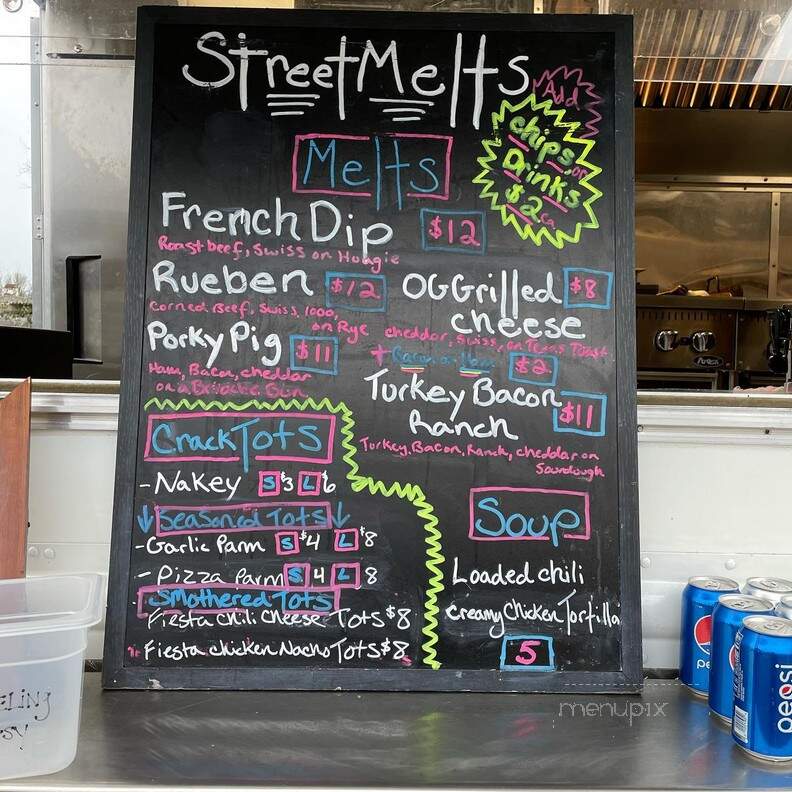 StreetMelts
Add
chips, or
Drinks
$2
Melts
French Dip $12
Roast beef, Swiss on Hoagie
Rueben $12
Corned Beef, Swiss, 1000,
on Rye
Porky Pig $11
Ham, Bacon, cheddar
on a Brioche Bun
OG Grilled $8
cheese
cheddar, Swiss, on Texas Toast
+ Bacon or Ham $2
Turkey Bacon $11
Ranch
Turkey, Bacon, Ranch, cheddar on
Sourdough
CrackTots
- Nakey S $3 L 6
Seasoned Tots
- Garlic Parm S $4 L $8
- Pizza Parm S 4 L 8
Smothered Tots
Fiesta Chili Cheese Tots $8
Fiesta chicken Nacho Tots $8
Soup
Loaded chili
Creamy Chicken Tortilla
5
menupix
pepsi